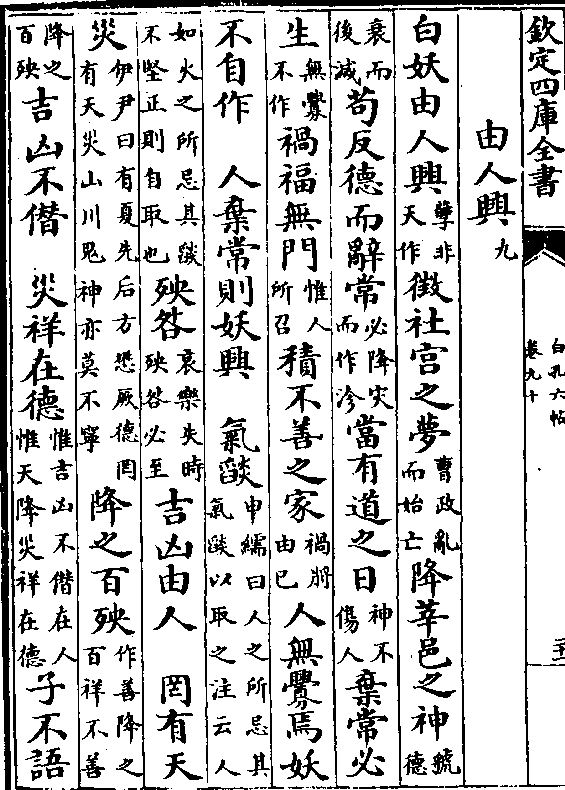 欽定四庫全書
白孔六帖
卷九十
由人興九
白妖由人興孽非天作徵社宮之夢曹政亂而始亡降莘邑之神虢德
衰而後滅苟反德而辭常必降灾而作沴當有道之日神不傷人棄常必
生無釁不作禍福無門惟人所召積不善之家禍將由已人無釁焉妖
不自作 人棄常則妖興 氣燄申繻曰人之所忌其氣燄以取之注云人
如火之所忌其燄不堅正則自取也殃咎哀樂失時殃咎必至吉凶由人 罔有天
災伊尹曰有夏先后方懋厥德罔有天災山川鬼神亦莫不寧降之百殃作善降之百祥不善
降之百殃吉凶不僭 災祥在德惟吉凶不僭在人惟天降災祥在德子不語